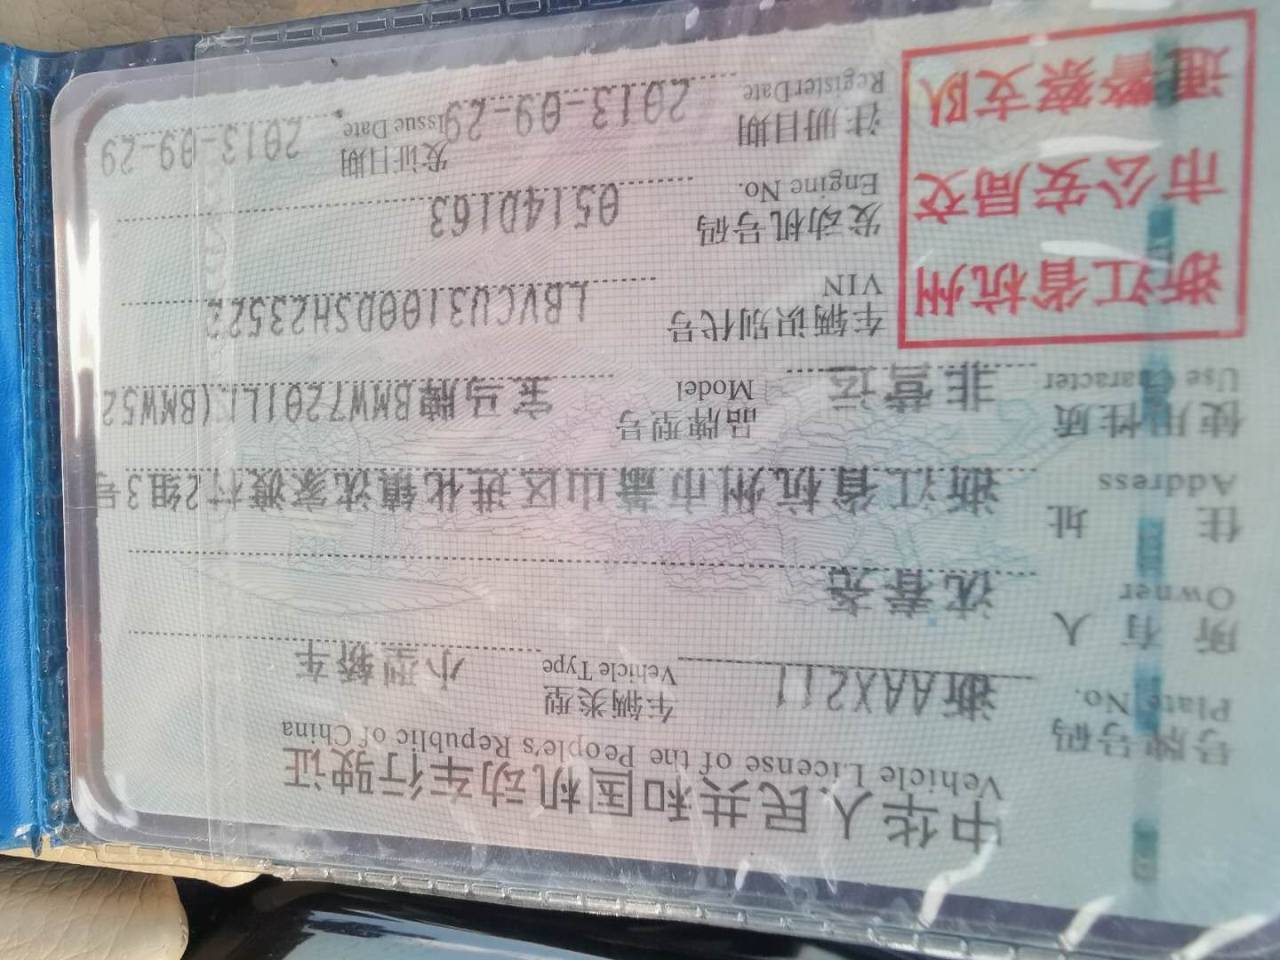 中华人民共和国机动车行驶证
Vehicle License of the People's Republic of China
号牌号码 浙AAX211 车辆类型 小型轿车
Plate No. Vehicle Type
所有人 沈春尧
Owner
住址 浙江省杭州市萧山区进化镇沈家渡村2组3号
Address
使用性质 非营运 品牌型号 宝马牌BMW7201LL(BMW52
Use Character Model
浙江省杭州
市公安局交
通警察支队
车辆识别代号 LBVCU3100DSH23522
VIN
发动机号码 0514D163
Engine No.
注册日期 2013-09-29 发证日期 2013-09-29
Register Date Issue Date